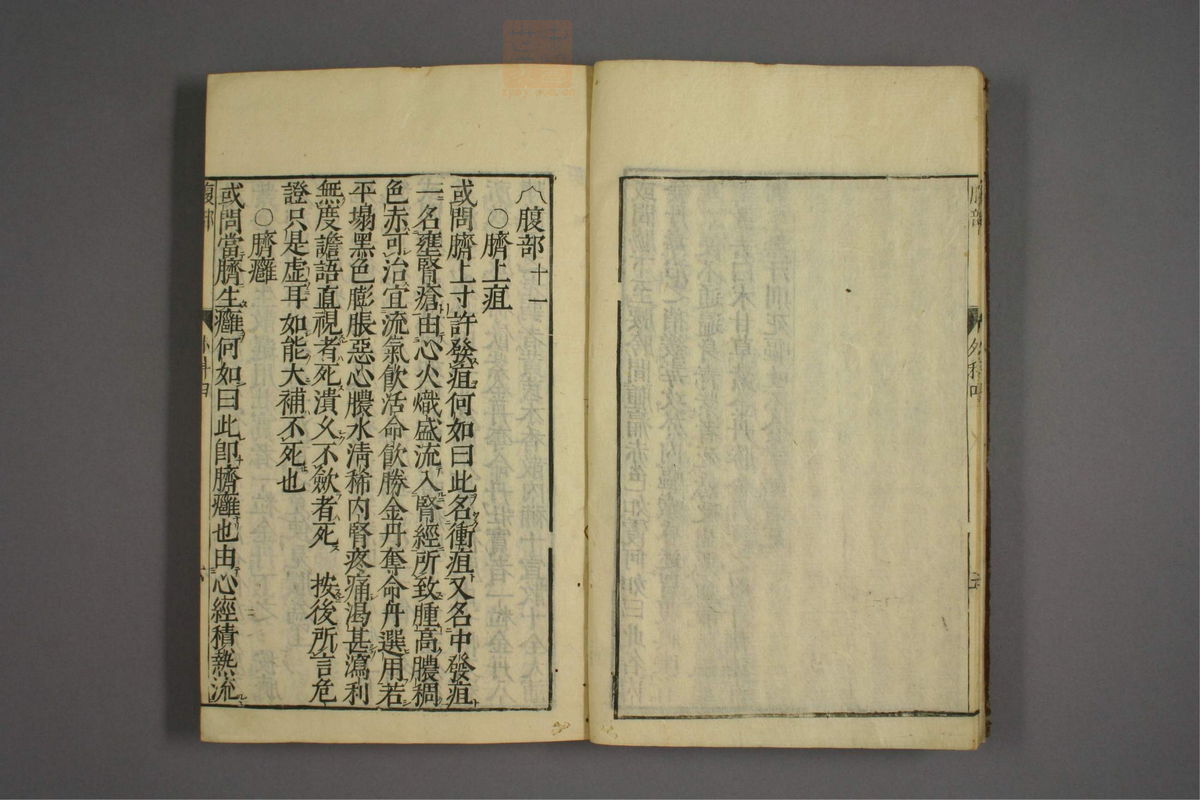 腹部十一
○臍上疽
或問臍上寸許發疽何如曰此名衝疽又名中發疽
一名壅腎瘡由心火熾盛流入腎經所致腫高膿稠
色赤可治宜流氣飲活命飲勝金丹奪命丹選用若
平塌黑色膨脹惡心膿水清稀内腎疼痛渴甚瀉利
無度譫語直視者死潰久不歛者死 按後所言危
證只是虛耳如能大補不死也
○臍癰
或問當臍生癰何如曰此卽臍癰也由心經積熱流
腹部